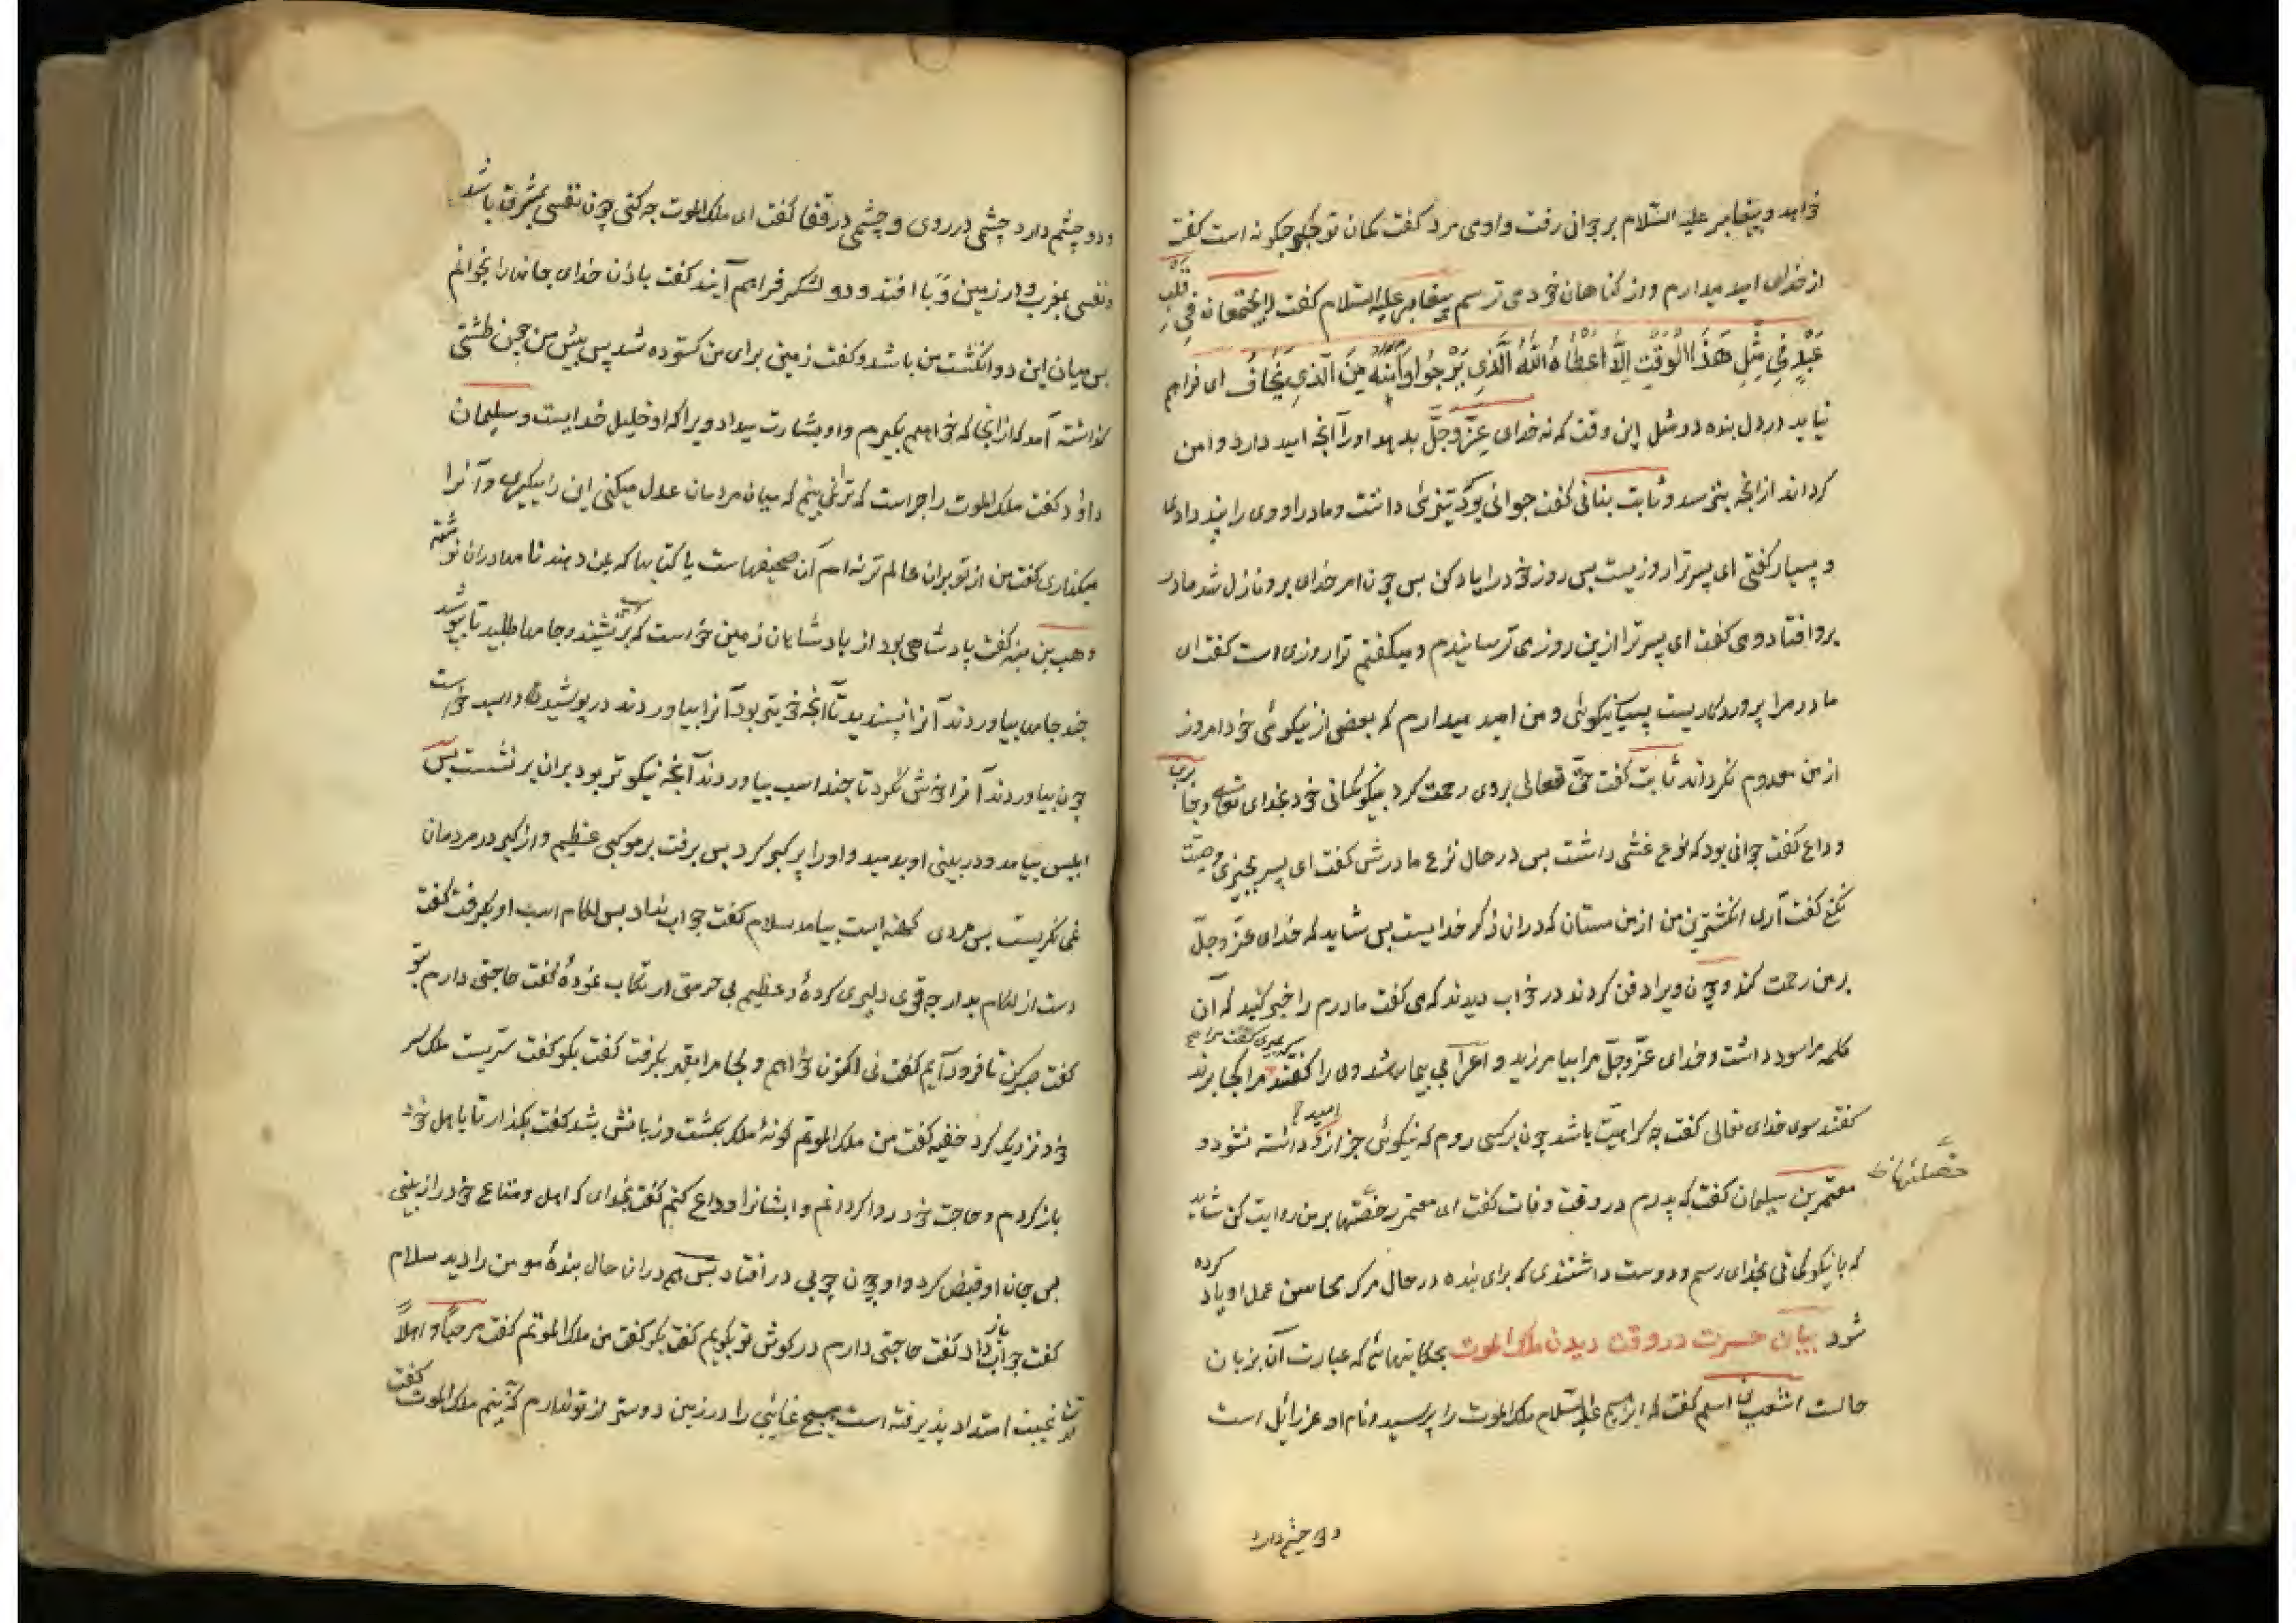 خواهد و پیغامبر علیه السّلام بر جوانی رفت و او می مرد گفت گمان تو چگونه است گفت
از خدای امید میدارم و از گناهان خود می ترسم پیغامبر علیه السّلام گفت لا یجتمعان فی قلب
عَبْدٍ فِی مِثْلِ هَذَا الْوَقْتِ اِلَّا اَعْطَاهُ اللّٰهُ الَّذِی یَرْجُوا وَ آمَنَهُ مِنَ الَّذِی یَخَافُ ای فراهم
نیاید در دل بنده در مثل این وقت که نه خدای عزّ وجلّ بدهد او را آنچه امید دارد و امن
گرداند از آنچه بترسد و ثابت بنانی گفت جوانی بود تیزیٔ داشت و مادر او وی را پند دادی
و بسیار گفتی ای پسر ترا روزیست پس روز خود را یاد کن پس چون امر خدای برو نازل شد مادر
برو افتاد و می گفت ای پسر ترا ازین روز می ترسانیدم و میگفتم ترا روزی است گفت ای
مادر مرا پروردگاریست بسیار نیکوئی و من امید میدارم که بعضی از نیکوئی خود امروز
از من معدوم نگرداند ثابت گفت حقّ تعالی بروی رحمت کرد بنیکو گمانی خود بخدای تعالی و جابر بن
وداع گفت جوانی بود که نوع غشی داشت پس در حال نزع مادرش گفت ای پسر بچیزی وصیت
نکنی گفت آری انگشترین من از من مستان که دران ذکر خدایست پس شاید که خدای عزّ وجلّ
بر من رحمت کند و چون ویرا دفن کردند در خواب دیدند که می گفت مادرم را خبر کنید که آن
کلمه مرا سود داشت و خدای عزّ وجلّ مرا بیامرزید و اعرابی بیمار شد وی را گفتند که بمیری گفت مرا کجا برند
گفتند سوی خدای تعالی گفت چه کراهیت باشد چون بر کسی روم که نیکوئی جز ازو امید داشته نشود و
معتمر بن سلیمان گفت که پدرم در وقت وفات گفت ای معتمر رخصتها بر من روایت کن شاید
خصلتها
که با نیکو گمانی بخدای رسم و دوست داشتندی که برای بنده در حال مرگ محاسن عمل او یاد کرده
شود بیان حسرت در وقت دیدن ملک الموت بحکایتهائی که عبارت آن بزبان
حالت اشعب بن اسلم گفت که ابراهیم علیه السّلام ملک الموت را پرسید و نام او عزرائیل است
و دو چشم دارد
و دو چشم دارد چشمی در روی و چشمی در قفا گفت ای ملک الموت چه کنی چون نفسی بمشرق باشد
و نفسی بمغرب و در زمین وَبا افتد و دو لشکر فراهم آیند گفت باذن خدای جانها را بخوانم
پس میان این دو انگشت من باشد و گفت زمین برای من گسترده شد پس پیش من چون طشتی
گذاشته آمد که از انجا که خواهم بگیرم و او بشارت میداد ویرا که او خلیل خدایست و سلیمان
داؤد گفت ملک الموت را چراست که ترا نمی بینم که میان مردمان عدل میکنی این را میگیری و آنرا
میگذاری گفت من از تو بران عالم تر نه ام آن صحیفهاست یا کتابها که بمن دهند نامها دران نوشته
وهب بن منبه گفت پادشاهی بود از پادشاهان زمین خواست که برنشیند و جامها طلبید تا بپوشد
چند جامه بیاوردند آنرا نپسندید تا آنچه خوبتر بود آنرا بیاوردند در پوشید و اسپ خواست
چون بیاوردند آنرا خوش نکرد تا چند اسپ بیاوردند آنچه نیکوتر بود بران بر نشست پس
ابلیس بیامد و در بینی او بدمید و او را پر کبر کرد پس برفت بر موکبی عظیم و از کبر در مردمان
نمی نگریست پس مردی کهنه بیامد سلام گفت جواب نداد پس لگام اسپ او بگرفت گفت
دست از لگام بدار چه قوی دلیری کردهٔ و عظیم بی حرمتی ارتکاب نمودهٔ گفت حاجتی دارم بتو
گفت صبر کن تا فرود آیم گفت نی اکنون خواهم و لجام را بقهر بگرفت گفت بگو گفت سرّیست ملک سر
خود نزدیک کرد خفیه گفت من ملک الموتم گونهٔ ملک بگشت و زبانش بشد گفت بگذار تا باهل خود
باز گردم و حاجت خود روا گردانم و ایشانرا وداع کنم گفت بخدای که اهل و متاع خود را نبینی
پس جان او قبض کرد و او چون چوبی در افتاد پس هم دران حال بندهٔ مومن را دید سلام
گفت جواب باز داد گفت حاجتی دارم در گوش تو بگویم گفت بگو گفت من ملک الموتم گفت مرحباً و اهلاً
غیبت امتداد پذیرفته است هیچ غائبی را در زمین دوستر از تو ندارم که بینم ملک الموت گفت